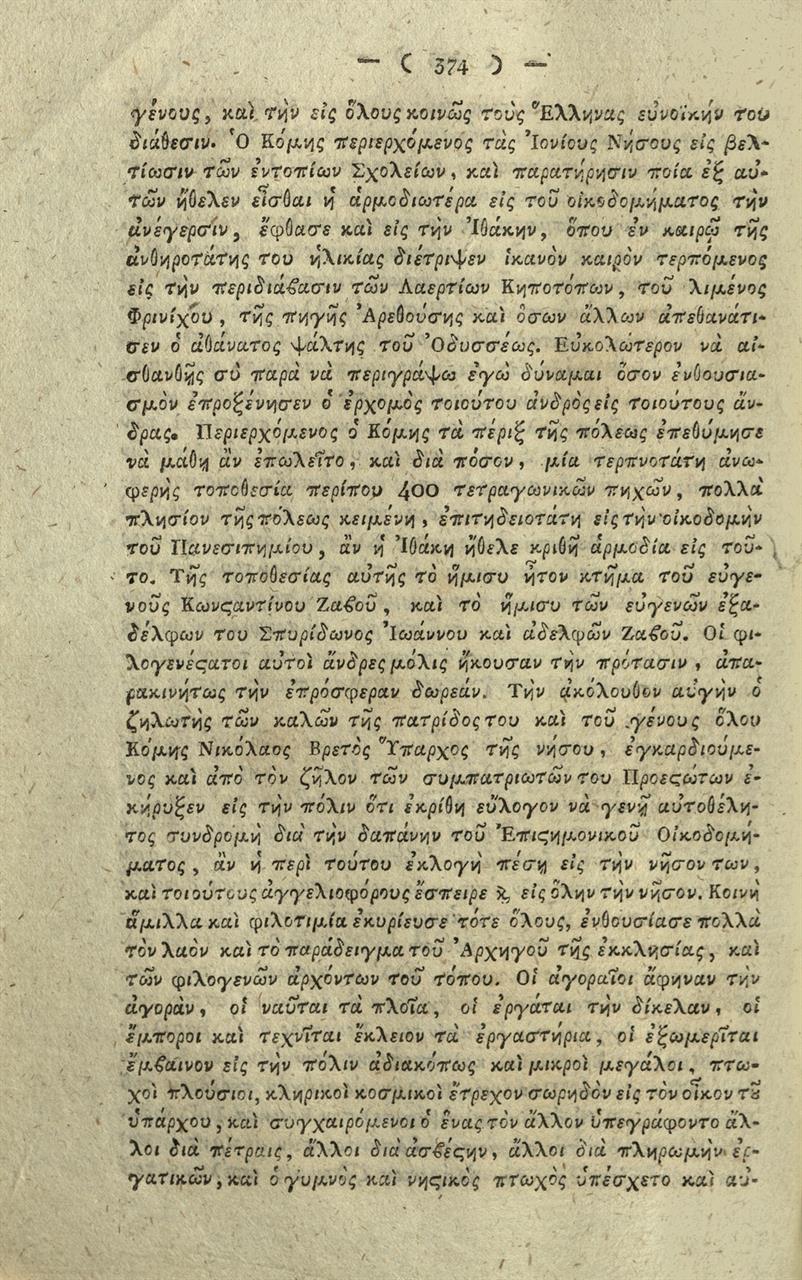 — ( 374 ) —
γένους, καὶ τὴν εἰς ὅλους κοινῶς τοὺς Ἕλληνας εὐνοϊκήν του
διάθεσιν. Ὁ Κόμης περιερχόμενος τὰς Ἰονίους Νήσους εἰς βελ-
τίωσιν τῶν ἐντοπίων Σχολείων, καὶ παρατήρησιν ποία ἐξ αὐ-
τῶν ἤθελεν εἶσθαι ἡ ἁρμοδιωτέρα εἰς τοῦ οἰκοδομήματος τὴν
ἀνέγερσιν, ἔφθασε καὶ εἰς τὴν Ἰθάκην, ὅπου ἐν καιρῷ τῆς
ἀνθηροτάτης του ἡλικίας διέτριψεν ἱκανὸν καιρὸν τερπόμενος
εἰς τὴν περιδιάϐασιν τῶν Λαερτίων Κηποτόπων, τοῦ λιμένος
Φρινίχου, τῆς πηγῆς Ἀρεθούσης καὶ ὅσων ἄλλων ἀπεθανάτι-
σεν ὁ ἀθάνατος ψάλτης τοῦ Ὀδυσσέως. Εὐκολώτερον νὰ αἰ-
σθανθῇς σὺ παρὰ νὰ περιγράψω ἐγὼ δύναμαι ὅσον ἐνθουσια-
σμὸν ἐπροξένησεν ὁ ἐρχομὸς τοιούτου ἀνδρὸς εἰς τοιούτους ἄν-
δρας. Περιερχόμενος ὁ Κόμης τὰ πέριξ τῆς πόλεως ἐπεθύμησε
νὰ μάθῃ ἂν ἐπωλεῖτο, καὶ διὰ πόσον, μία τερπνοτάτη ἀνω-
φερὴς τοποθεσία περίπου 400 τετραγωνικῶν πηχῶν, πολλὰ
πλησίον τῆς πόλεως κειμένη, ἐπιτηδειοτάτη εἰς τὴν οἰκοδομὴν
τοῦ Πανεπιστημίου, ἂν ἡ Ἰθάκη ἤθελε κριθῆ ἁρμοδία εἰς τοῦ-
το. Τῆς τοποθεσίας αὐτῆς τὸ ἥμισυ ἦτον κτῆμα τοῦ εὐγε-
νοῦς Κωνϛαντίνου Ζαϐοῦ, καὶ τὸ ἥμισυ τῶν εὐγενῶν ἐξα-
δέλφων του Σπυρίδωνος Ἰωάννου καὶ ἀδελφῶν Ζαϐοῦ. Οἱ φι-
λογενέϛατοι αὐτοὶ ἄνδρες μόλις ἤκουσαν τὴν πρότασιν, ἀπα-
ρακινήτως τὴν ἐπρόσφεραν δωρεάν. Τὴν ἀκόλουθον αὐγὴν ὁ
ζηλωτὴς τῶν καλῶν τῆς πατρίδος του καὶ τοῦ γένους ὅλου
Κόμης Νικόλαος Βρετὸς Ὕπαρχος τῆς νήσου, ἐγκαρδιούμε-
νος καὶ ἀπὸ τὸν ζῆλον τῶν συμπατριωτῶν του Προεϛώτων ἐ-
κήρυξεν εἰς τὴν πόλιν ὅτι ἐκρίθη εὔλογον νὰ γενῇ αὐτοθέλη-
τος συνδρομὴ διὰ τὴν δαπάνην τοῦ Ἐπιϛημονικοῦ Οἰκοδομή-
ματος, ἂν ἡ περὶ τούτου ἐκλογὴ πέσῃ εἰς τὴν νῆσον των,
καὶ τοιούτους ἀγγελιοφόρους ἔσπειρε ϗ εἰς ὅλην τὴν νῆσον. Κοινὴ
ἅμιλλα καὶ φιλοτιμία ἐκυρίευσε τότε ὅλους, ἐνθουσίασε πολλὰ
τὸν λαὸν καὶ τὸ παράδειγμα τοῦ Ἀρχηγοῦ τῆς ἐκκλησίας, καὶ
τῶν φιλογενῶν ἀρχόντων τοῦ τόπου. Οἱ ἀγοραῖοι ἄφηναν τὴν
ἀγορὰν, οἱ ναῦται τὰ πλοῖα, οἱ ἐργάται τὴν δίκελαν, οἱ
ἔμποροι καὶ τεχνῖται ἔκλειον τὰ ἐργαστήρια, οἱ ἐξωμερῖται
ἔμϐαινον εἰς τὴν πόλιν ἀδιακόπως καὶ μικροὶ μεγάλοι, πτω-
χοὶ πλούσιοι, κληρικοὶ κοσμικοὶ ἔτρεχον σωρηδὸν εἰς τὸν οἶκον τȣ͂
ὑπάρχου, καὶ συγχαιρόμενοι ὁ ἕνας τὸν ἄλλον ὑπεγράφοντο ἄλ-
λοι διὰ πέτραις, ἄλλοι διὰ ἀσϐέϛην, ἄλλοι διὰ πληρωμὴν ἐρ-
γατικῶν, καὶ ὁ γυμνὸς καὶ νηϛικὸς πτωχὸς ὑπέσχετο καὶ αὐ-